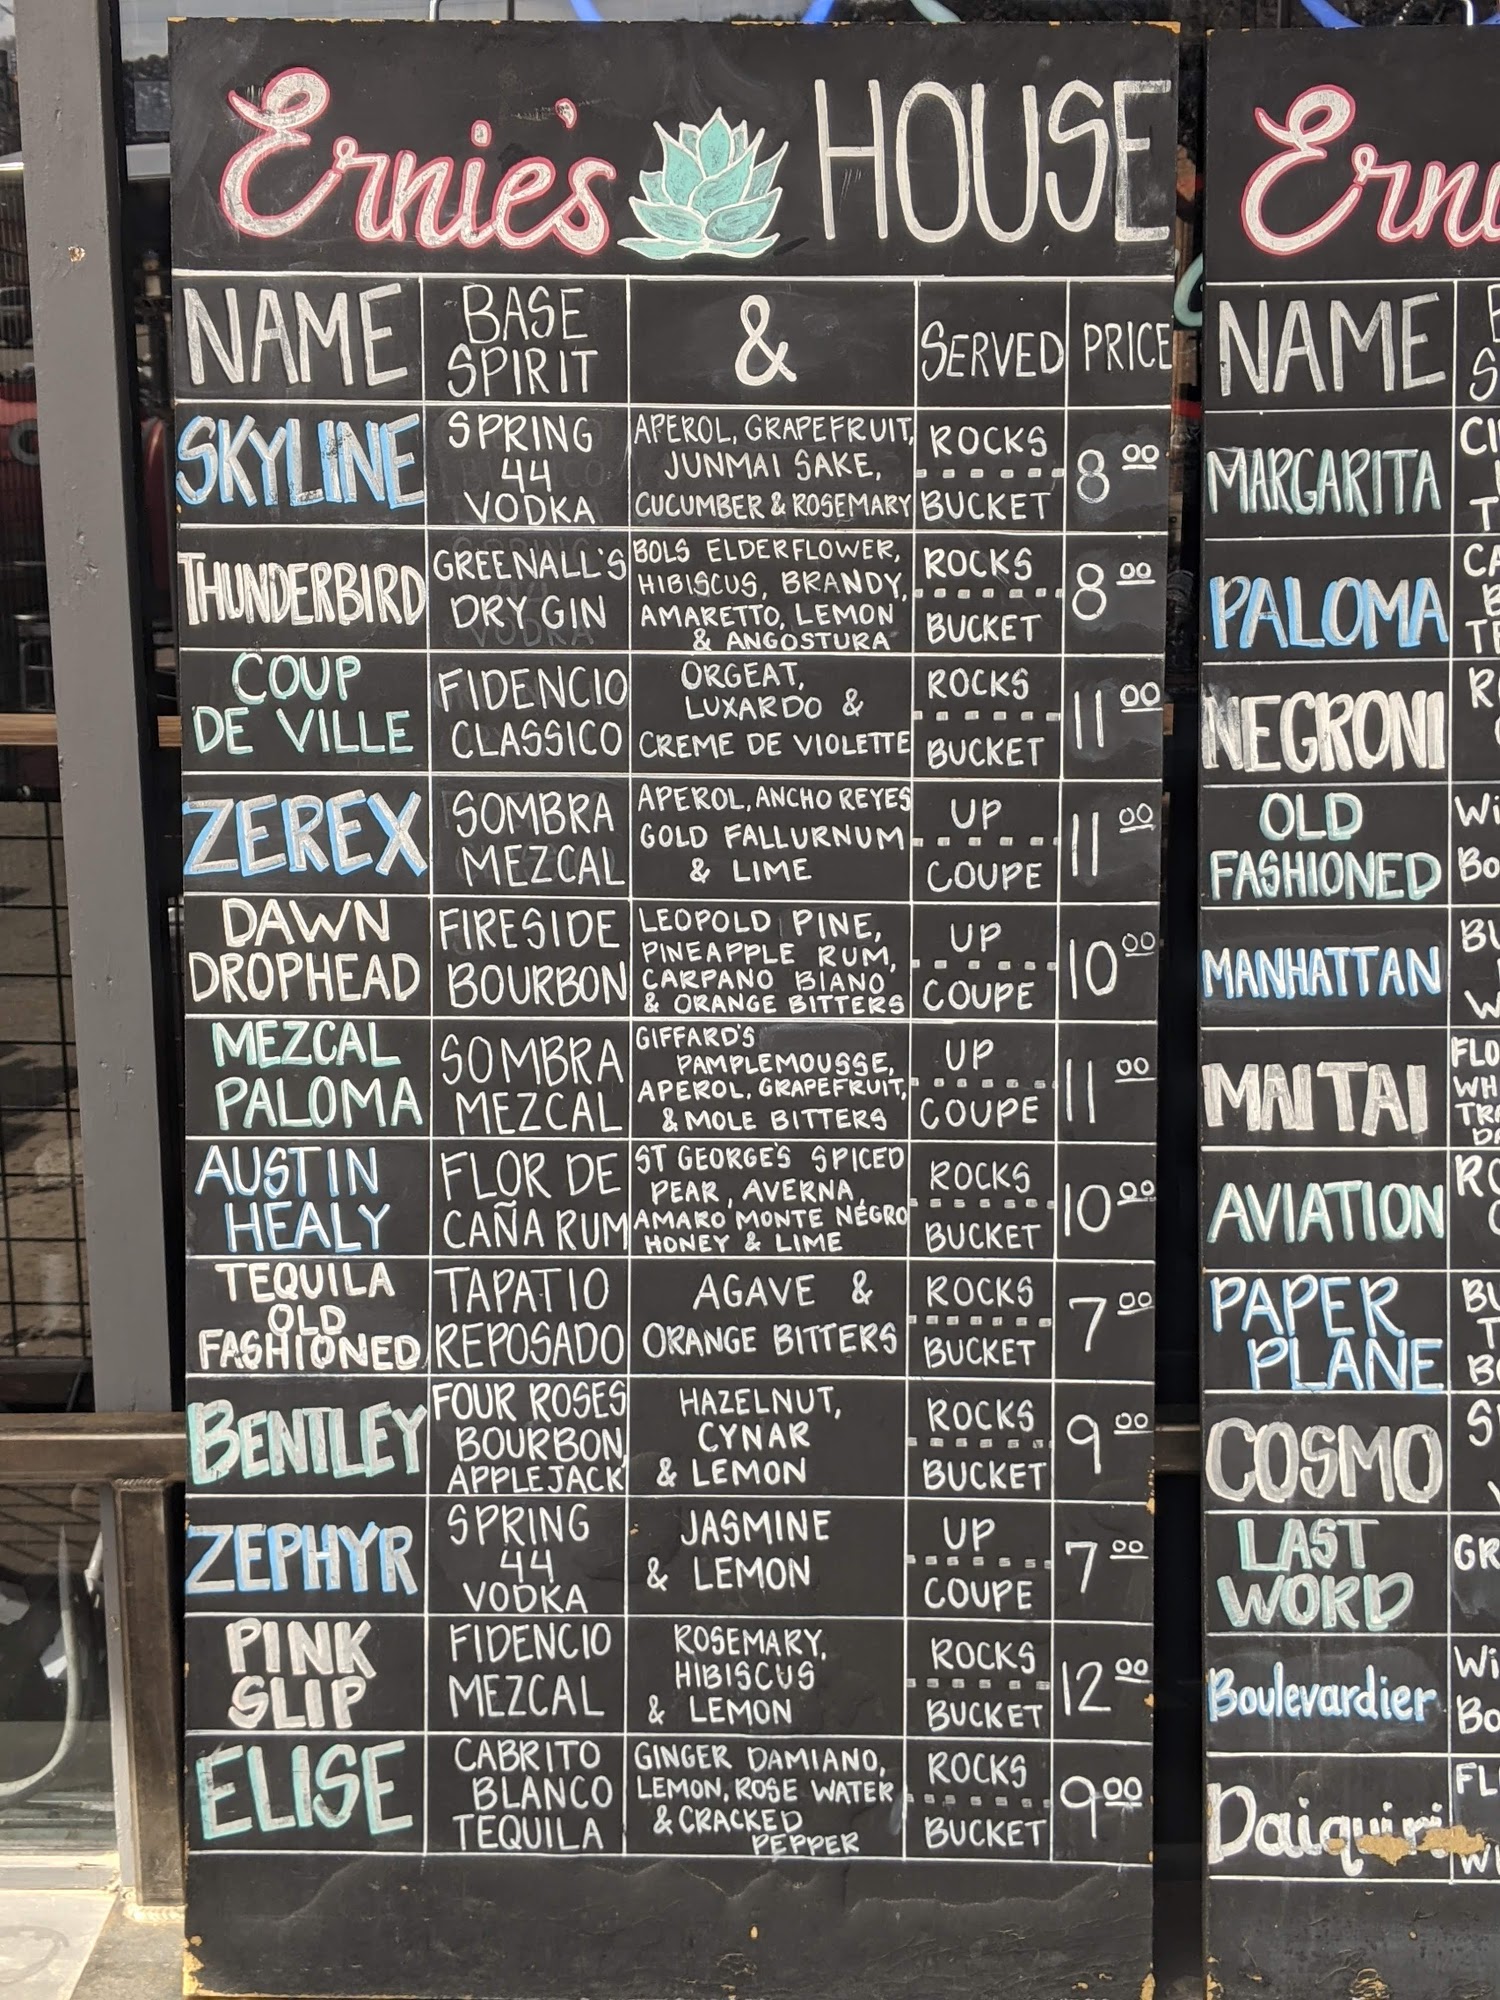 Ernie's HOUSE
NAME
BASE
SPIRIT
&
SERVED
PRICE
SKYLINE
SPRING
44
VODKA
APEROL, GRAPEFRUIT,
JUNMAI SAKE,
CUCUMBER & ROSEMARY
ROCKS
BUCKET
8 00
THUNDERBIRD
GREENALL'S
DRY GIN
BOLS ELDERFLOWER,
HIBISCUS, BRANDY,
AMARETTO, LEMON
& ANGOSTURA
ROCKS
BUCKET
8 00
COUP
DE VILLE
FIDENCIO
CLASSICO
ORGEAT,
LUXARDO &
CREME DE VIOLETTE
ROCKS
BUCKET
11 00
ZEREX
SOMBRA
MEZCAL
APEROL, ANCHO REYES
GOLD FALLURNUM
& LIME
UP
COUPE
11 00
DAWN
DROPHEAD
FIRESIDE
BOURBON
LEOPOLD PINE,
PINEAPPLE RUM,
CARPANO BIANO
& ORANGE BITTERS
UP
COUPE
10 00
MEZCAL
PALOMA
SOMBRA
MEZCAL
GIFFARD'S
PAMPLEMOUSSE,
APEROL, GRAPEFRUIT,
& MOLE BITTERS
UP
COUPE
11 00
AUSTIN
HEALY
FLOR DE
CAÑA RUM
ST GEORGE'S SPICED
PEAR, AVERNA,
AMARO MONTE NEGRO
HONEY & LIME
ROCKS
BUCKET
10 00
TEQUILA
OLD
FASHIONED
TAPATIO
REPOSADO
AGAVE &
ORANGE BITTERS
ROCKS
BUCKET
7 00
BENTLEY
FOUR ROSES
BOURBON,
APPLEJACK
HAZELNUT,
CYNAR
& LEMON
ROCKS
BUCKET
9 00
ZEPHYR
SPRING
44
VODKA
JASMINE
& LEMON
UP
COUPE
7 00
PINK
SLIP
FIDENCIO
MEZCAL
ROSEMARY,
HIBISCUS
& LEMON
ROCKS
BUCKET
12 00
ELISE
CABRITO
BLANCO
TEQUILA
GINGER DAMIANO,
LEMON, ROSE WATER
& CRACKED
PEPPER
ROCKS
BUCKET
9 00
NAME
MARGARITA
PALOMA
NEGRONI
OLD
FASHIONED
MANHATTAN
MAI TAI
AVIATION
PAPER
PLANE
COSMO
LAST
WORD
Boulevardier
Daiquiri